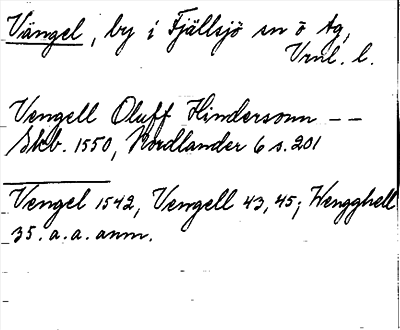 Vängel, by i Fjällsjö sn ö Åg,
Vrnl. l.
Vengell Oluff Hindersonn --
Skb. 1550, Nordlander 6 s. 201
Vengel 1542, Vemgell 43, 45; Wengghell
35. a. a. anm.